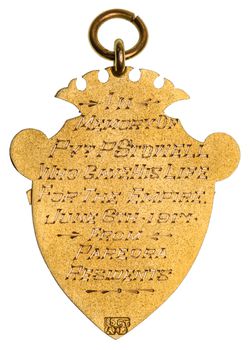 IN
MEMORY OF
PVT P STONELL
WHO GAVE HIS LIFE
FOR THE EMPIRE
JUNE 8TH. 1917.
FROM
PAREORA
RESIDENTS